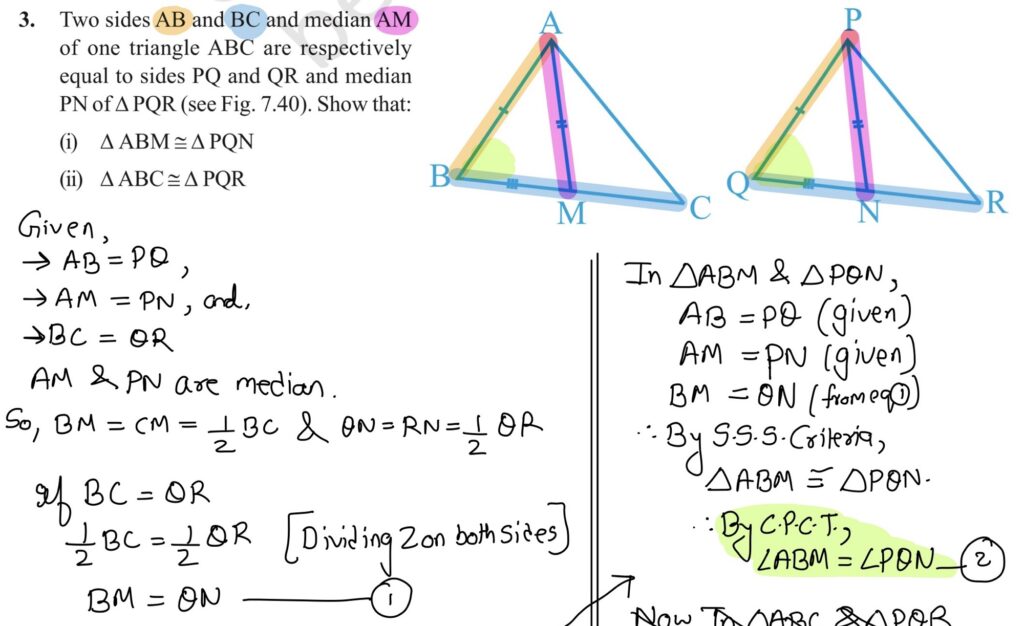 3. Two sides AB and BC and median AM
of one triangle ABC are respectively
equal to sides PQ and QR and median
PN of Δ PQR (see Fig. 7.40). Show that:
(i) Δ ABM ≅ Δ PQN
(ii) Δ ABC ≅ Δ PQR
A
B
M
C
P
Q
N
R
Given,
→ AB = PQ,
→ AM = PN, and,
→ BC = QR
AM & PN are median.
So, BM = CM = 1/2 BC & QN = RN = 1/2 QR
If BC = QR
1/2 BC = 1/2 QR [Dividing 2 on both Sides]
BM = QN —— 1
In ΔABM & ΔPQN,
AB = PQ (given)
AM = PN (given)
BM = QN (from eq 1)
∴ By S.S.S. Criteria,
ΔABM ≅ ΔPQN.
∴ By C.P.C.T.,
∠ABM = ∠PQN — 2
Now In ΔABC & ΔPQR